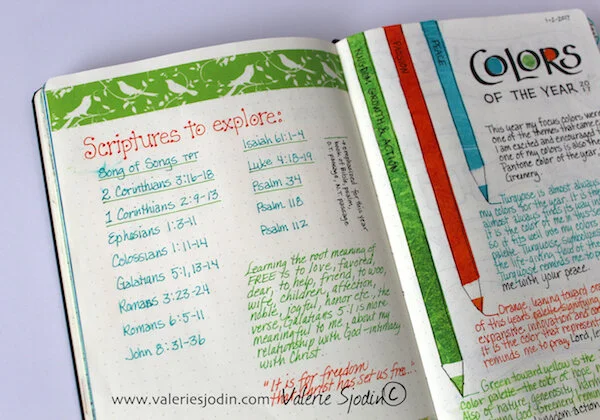 Scriptures to explore:
Song of Songs TPT
2 Corinthians 3:16-18
1 Corinthians 2:9-13
Ephesians 1:3-11
Colossians 1:11-14
Galatians 5:1, 13-14
Romans 3:23-24
Romans 6:5-11
John 8:31-36
Isaiah 61:1-4
Luke 4:18-19
Psalm 34
Psalm 118
Psalm 112
→ emphasized for this year
book of Bible, psalm,
O.T. passage, N.T passage
Learning the root meaning of
FREE is to love, favored,
dear, to help, friend, to woo,
wife, children, affection,
noble, joyful, honor etc., the
verse, Galatians 5:1 is more
meaningful to me, about my
relationship with God-intimacy
with Christ.
"It is for freedom
that Christ has set us free..."
WISDOM, GROWTH & ACTION
PASSION
PEACE
1-2-2017
COLORS
OF THE YEAR 2017
This year my focus colors were
one of the themes that came
I am excited and encouraged
one of my colors is also the
Pantone color of the year,
Greenery.
Turquoise is almost always
my colors for the year. It is
almost always finds
It is the color of me in this
so it fits well into my colors
palette. Turquoise symbolizes
the life-giving
Turquoise reminds me to
me with your peace.
Orange, leaning toward
of this year's palette, signifying
expansive, innovation and
it is the color that represents
reminds me to pray, Lord,
Green toward yellow is the
color palette- the color of hope,
of nature, generosity,
action
www.valeriesjodin.com Valerie Sjodin©